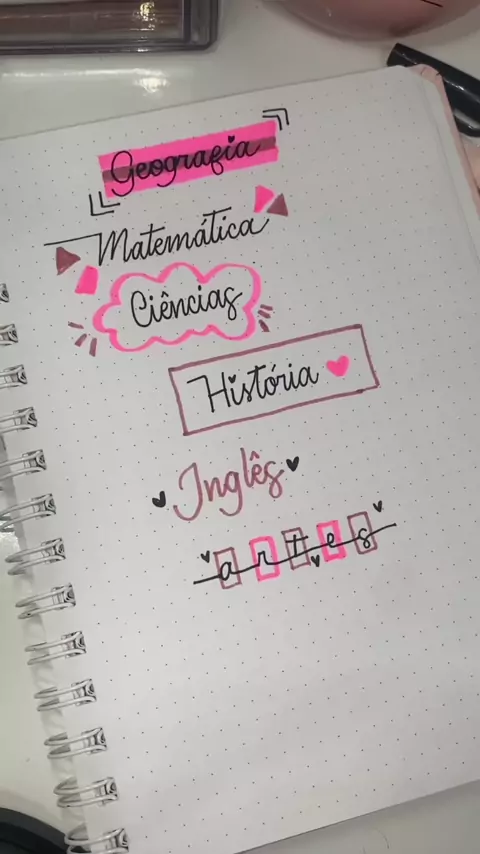 Geografia
Matemática
Ciências
História
Inglês
artes